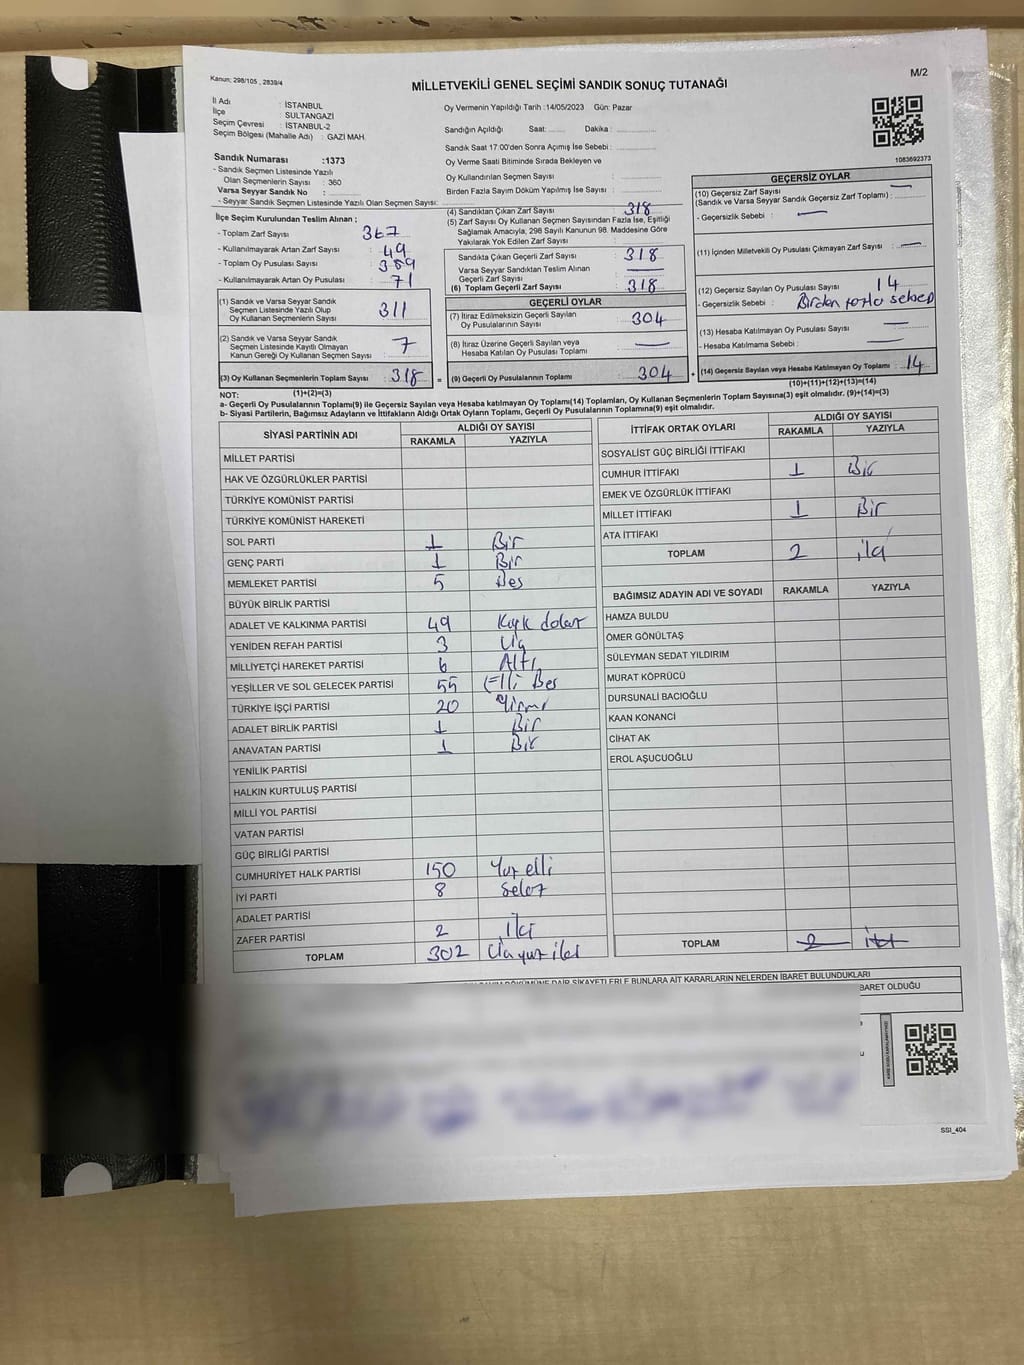 Kanun; 298/105 , 2839/4
M/2
MİLLETVEKİLİ GENEL SEÇİMİ SANDIK SONUÇ TUTANAĞI
İl Adı : İSTANBUL
İlçe : SULTANGAZİ
Seçim Çevresi : İSTANBUL-2
Seçim Bölgesi (Mahalle Adı) : GAZİ MAH.
Oy Vermenin Yapıldığı Tarih :14/05/2023 Gün: Pazar
Sandığın Açıldığı Saat: ........ Dakika : ....................
Sandık Saat 17:00'den Sonra Açımış İse Sebebi : ....................
Oy Verme Saati Bitiminde Sırada Bekleyen ve
Oy Kullandırılan Seçmen Sayısı : ....................
Birden Fazla Sayım Döküm Yapılmış İse Sayısı : ....................
1083692373
Sandık Numarası :1373
- Sandık Seçmen Listesinde Yazılı
Olan Seçmenlerin Sayısı : 360
Varsa Seyyar Sandık No :
- Seyyar Sandık Seçmen Listesinde Yazılı Olan Seçmen Sayısı:
İlçe Seçim Kurulundan Teslim Alınan ;
- Toplam Zarf Sayısı : 367
- Kullanılmayarak Artan Zarf Sayısı : 49
- Toplam Oy Pusulası Sayısı : 389
- Kullanılmayarak Artan Oy Pusulası : 71
(1) Sandık ve Varsa Seyyar Sandık
Seçmen Listesinde Yazılı Olup
Oy Kullanan Seçmenlerin Sayısı : 311
(2) Sandık ve Varsa Seyyar Sandık
Seçmen Listesinde Kayıtlı Olmayan
Kanun Gereği Oy Kullanan Seçmen Sayısı : 7
(3) Oy Kullanan Seçmenlerin Toplam Sayısı : 318
(1)+(2)=(3)
(4) Sandıktan Çıkan Zarf Sayısı : 318
(5) Zarf Sayısı Oy Kullanan Seçmen Sayısından Fazla İse, Eşitliği
Sağlamak Amacıyla, 298 Sayılı Kanunun 98. Maddesine Göre
Yakılarak Yok Edilen Zarf Sayısı :
Sandıkta Çıkan Geçerli Zarf Sayısı : 318
Varsa Seyyar Sandıktan Teslim Alınan
Geçerli Zarf Sayısı : —
(6) Toplam Geçerli Zarf Sayısı : 318
GEÇERLİ OYLAR
(7) İtiraz Edilmeksizin Geçerli Sayılan
Oy Pusulalarının Sayısı : 304
(8) İtiraz Üzerine Geçerli Sayılan veya
Hesaba Katılan Oy Pusulası Toplamı : —
= (9) Geçerli Oy Pusulalarının Toplamı : 304
GEÇERSİZ OYLAR
(10) Geçersiz Zarf Sayısı —
(Sandık ve Varsa Seyyar Sandık Geçersiz Zarf Toplamı) :
- Geçersizlik Sebebi : —
(11) İçinden Milletvekili Oy Pusulası Çıkmayan Zarf Sayısı : —
(12) Geçersiz Sayılan Oy Pusulası Sayısı : 14
- Geçersizlik Sebebi : Birden fazla sebep
(13) Hesaba Katılmayan Oy Pusulası Sayısı : —
- Hesaba Katılmama Sebebi : —
+ (14) Geçersiz Sayılan veya Hesaba Katılmayan Oy Toplamı : 14
(10)+(11)+(12)+(13)=(14)
NOT:
a- Geçerli Oy Pusulalarının Toplamı(9) ile Geçersiz Sayılan veya Hesaba katılmayan Oy Toplamı(14) Toplamları, Oy Kullanan Seçmenlerin Toplam Sayısına(3) eşit olmalıdır. (9)+(14)=(3)
b- Siyasi Partilerin, Bağımsız Adayların ve İttifakların Aldığı Ortak Oyların Toplamı, Geçerli Oy Pusulalarının Toplamına(9) eşit olmalıdır.
SİYASİ PARTİNİN ADI ALDIĞI OY SAYISI
RAKAMLA YAZIYLA
MİLLET PARTİSİ
HAK VE ÖZGÜRLÜKLER PARTİSİ
TÜRKİYE KOMÜNİST PARTİSİ
TÜRKİYE KOMÜNİST HAREKETİ
SOL PARTİ 1 Bir
GENÇ PARTİ 1 Bir
MEMLEKET PARTİSİ 5 Beş
BÜYÜK BİRLİK PARTİSİ
ADALET VE KALKINMA PARTİSİ 49 Kırk dokuz
YENİDEN REFAH PARTİSİ 3 Üç
MİLLİYETÇİ HAREKET PARTİSİ 6 Altı
YEŞİLLER VE SOL GELECEK PARTİSİ 55 Elli Beş
TÜRKİYE İŞÇİ PARTİSİ 20 Yirmi
ADALET BİRLİK PARTİSİ 1 Bir
ANAVATAN PARTİSİ 1 Bir
YENİLİK PARTİSİ
HALKIN KURTULUŞ PARTİSİ
MİLLİ YOL PARTİSİ
VATAN PARTİSİ
GÜÇ BİRLİĞİ PARTİSİ
CUMHURİYET HALK PARTİSİ 150 Yüz elli
İYİ PARTİ 8 Sekiz
ADALET PARTİSİ
ZAFER PARTİSİ 2 İki
TOPLAM 302 Üç yüz iki
İTTİFAK ORTAK OYLARI ALDIĞI OY SAYISI
RAKAMLA YAZIYLA
SOSYALİST GÜÇ BİRLİĞİ İTTİFAKI
CUMHUR İTTİFAKI 1 Bir
EMEK VE ÖZGÜRLÜK İTTİFAKI
MİLLET İTTİFAKI 1 Bir
ATA İTTİFAKI
TOPLAM 2 iki
BAĞIMSIZ ADAYIN ADI VE SOYADI RAKAMLA YAZIYLA
HAMZA BULDU
ÖMER GÖNÜLTAŞ
SÜLEYMAN SEDAT YILDIRIM
MURAT KÖPRÜCÜ
DURSUNALİ BACIOĞLU
KAAN KONANCİ
CİHAT AK
EROL AŞUCUOĞLU
TOPLAM 2 iki
DÖKÜMÜNE DAİR ŞİKAYETLERLE BUNLARA AİT KARARLARIN NELERDEN İBARET BULUNDUKLARI
BARET OLDUĞU
SSI_404